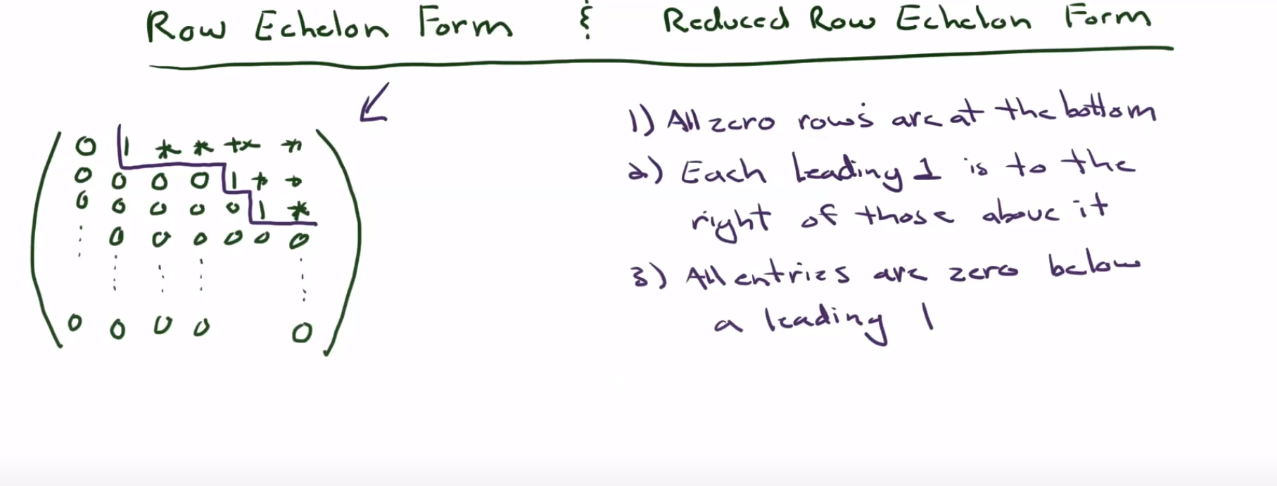 Row Echelon Form & Reduced Row Echelon Form
0 1 * * * * *
0 0 0 0 1 * *
0 0 0 0 0 1 *
0 0 0 0 0 0
0 0 0 0 0
1) All zero rows are at the bottom
2) Each leading 1 is to the
right of those above it
3) All entries are zero below
a leading 1